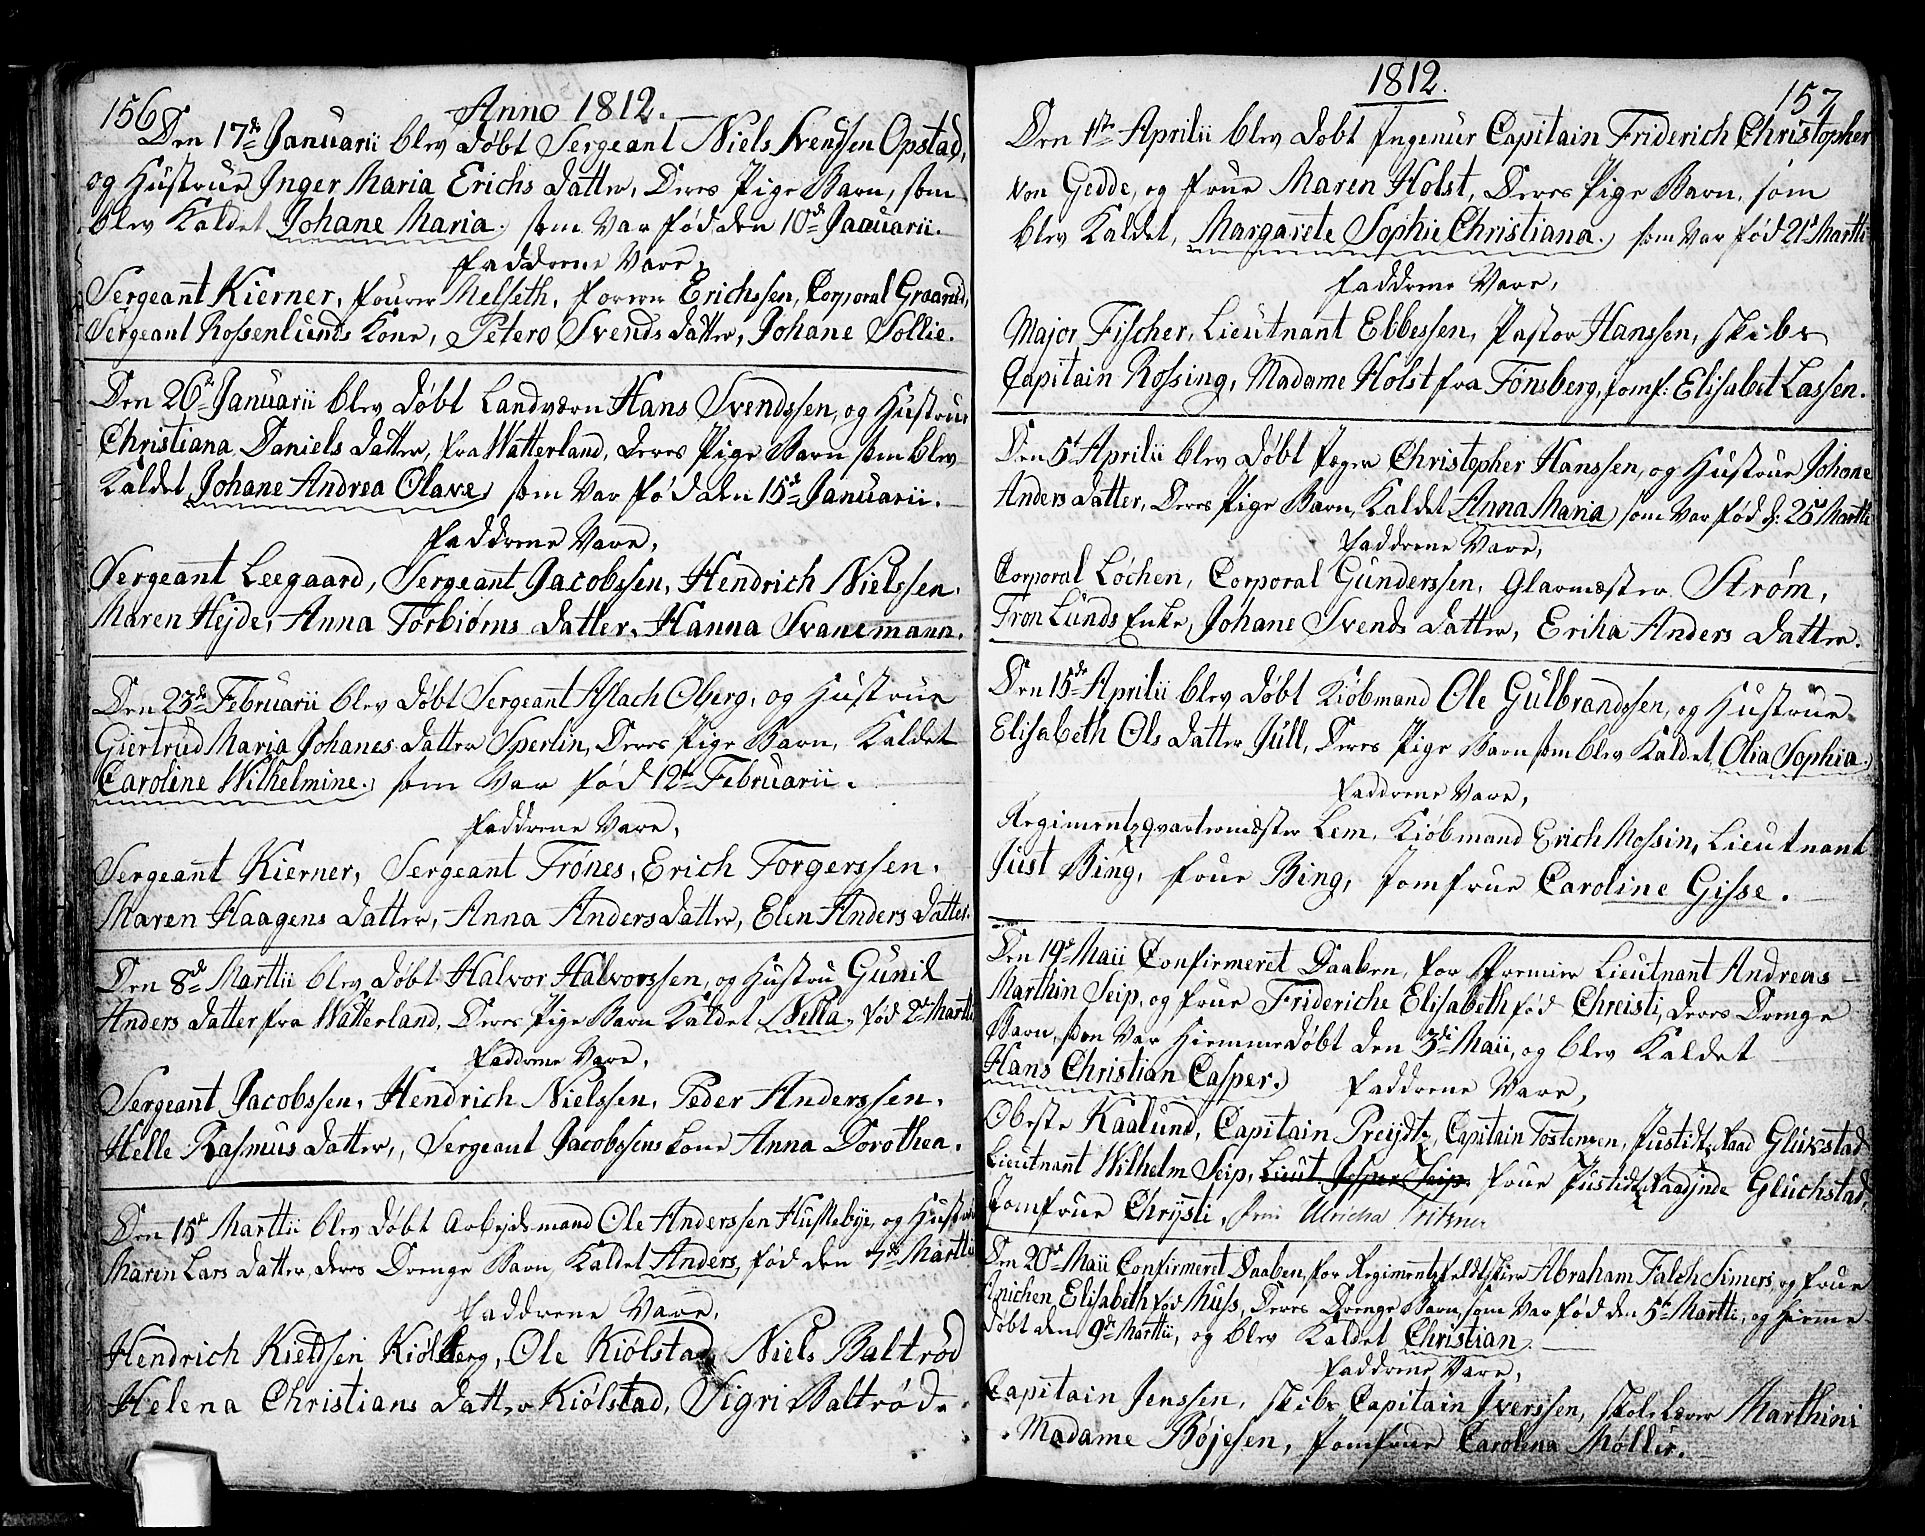 156
Anno 1812.
Den 17de Januarii blev døbt Sergeant Niels Svenssen Opstad,
og Hustrue Inger Maria Erichs datter, Deres Pige Barn, som
blev Kaldet Johane Maria. som Var fød den 10de Jaauarii.
Faddrene Vare,
Sergeant Kierner, fourer Melseth, forerer Erichssen, Corporal Graarud,
Sergeant Rossenlunds Kone, Petero Svends datter, Johane Sollie.
Den 26de Januarii blev døbt Landværn Hans Svendssen, og Hustrue
Christiana Daniels datter, fra Watterland, deres Pige Barn som blev
Kaldet Johane Andrea Olave, som Var fød den 15de Januarii.
Faddrene Vare,
Sergeant Leegaard, Sergeant Jacobssen, Hendrich Nielssen.
Maren Hejde, Anna Torbiørns datter, Hanna Svanemann.
Den 23de Februarii blev døbt Sergeant Aslach Oberg, og Hustrue
Giertrud Maria Johanes datter Sperlin, Deres Pige Barn, Kaldet
Caroline Wilhelmine. som Var fød 12te Februarii.
Faddrene Vare,
Sergeant Kierner, Sergeant Trönes, Erich Torgerssen.
Maren Haagens datter, Anna Anders datter, Elen Anders datter.
Den 8de Martii blev døbt Halvor Halvorssen, og Hustru Gunil
Anders datter fra Watterland, Deres Pige Barn Kaldet Nella, fød 2de Martii
Faddrene Vare,
Sergeant Jacobssen, Hendrich Nielssen, Peder Anderssen.
Helle Rasmus datter, Sergeant Jacobssens kone Anna Dorothea.
Den 15de Martii blev døbt Arbejdsmand Ole Anderssen Huslebye, og Hustrue
Maren Lars datter, deres Drenge Barn, Kaldet Anders, fød den 7de Martii
Faddrene Vare,
Hendrich Kieldsen Kiølberg, Ole Kiølstad, Niels Baltrød
Helena Christians datter Kiølstad, Sigri Baltrød.
1812.
157
Den 1ste Aprilii blev døbt Ingeniur Capitain Friderich Christopher
von Gedde, og frue Maren Holst, Deres Pige Barn, som
blev Kaldet, Margarete Sophie Christiana. som Var fød 21de Martii
Faddrene Vare,
Major Fischer, Lieutnant Ebbessen, Pastor Hanssen, Skibs
Capitain Rossing, Madame Holst fra Tönsberg, Jomf: Elisabet Lassen.
Den 5te Aprilii blev døbt Jæger Christopher Hanssen, og Hustrue Johane
Anders datter, Deres Pige Barn, Kaldet Anna Maria, som Var fød d: 25de Martii
Faddrene Vare,
Corporal Löchen, Corporal Gunderssen, Glarmester Strøm,
Tron Lunds Enke, Johane Svends datter, Erika Anders datter.
Den 15de Aprilii blev døbt Kiøbmand Ole Gulbrandssen, og Hustrue
Elisabeth Ols datter Jull, Deres Pige Barn som blev Kaldet, Olia Sophia.
Faddrene Vare,
Regimentzqvarteermester Lem, Kiøbmand Erich Mossin, Lieutnant
Just Bing, frue Bing, Jomfrue Caroline Gisse.
Den 19de Maii Confirmeret Daaben, for Premier Lieutnant Andreas
Marthin Seip, og frue Frideriche Elisabeth fød Chreisti, deres Drenge
Barn, som Var Hiemmedøbt den 3die Maii, og blev Kaldet
Hans Christian Casper. Faddrene Vare,
Obeste Kaalund, Capitain Preijdtz, Capitain Tostensen, Justidtz Raad Glükstad
Lieutnant Wilhelm Seip, Lieut. Jesper Seip. frue Justidtz Raadjnde Glückstad,
Jomfrue Chrysti, Ulricha
Den 20de Maii Confirmeret Daaben, for Regimentzfeldtskier Abraham Falch Simers, og frue
Anichen Elisabeth fød Muss, Deres Drenge Barn, som Var fød den 5te Martii, og hieme
døbt den 9de Martii, og blev Kaldet Christian.
Faddrene Vare,
Capitain Jenssen, Skibs Capitain Iverssen, Skolelærer Marthini
Madame Bøjesen, Jomfrue Carolina Møller.